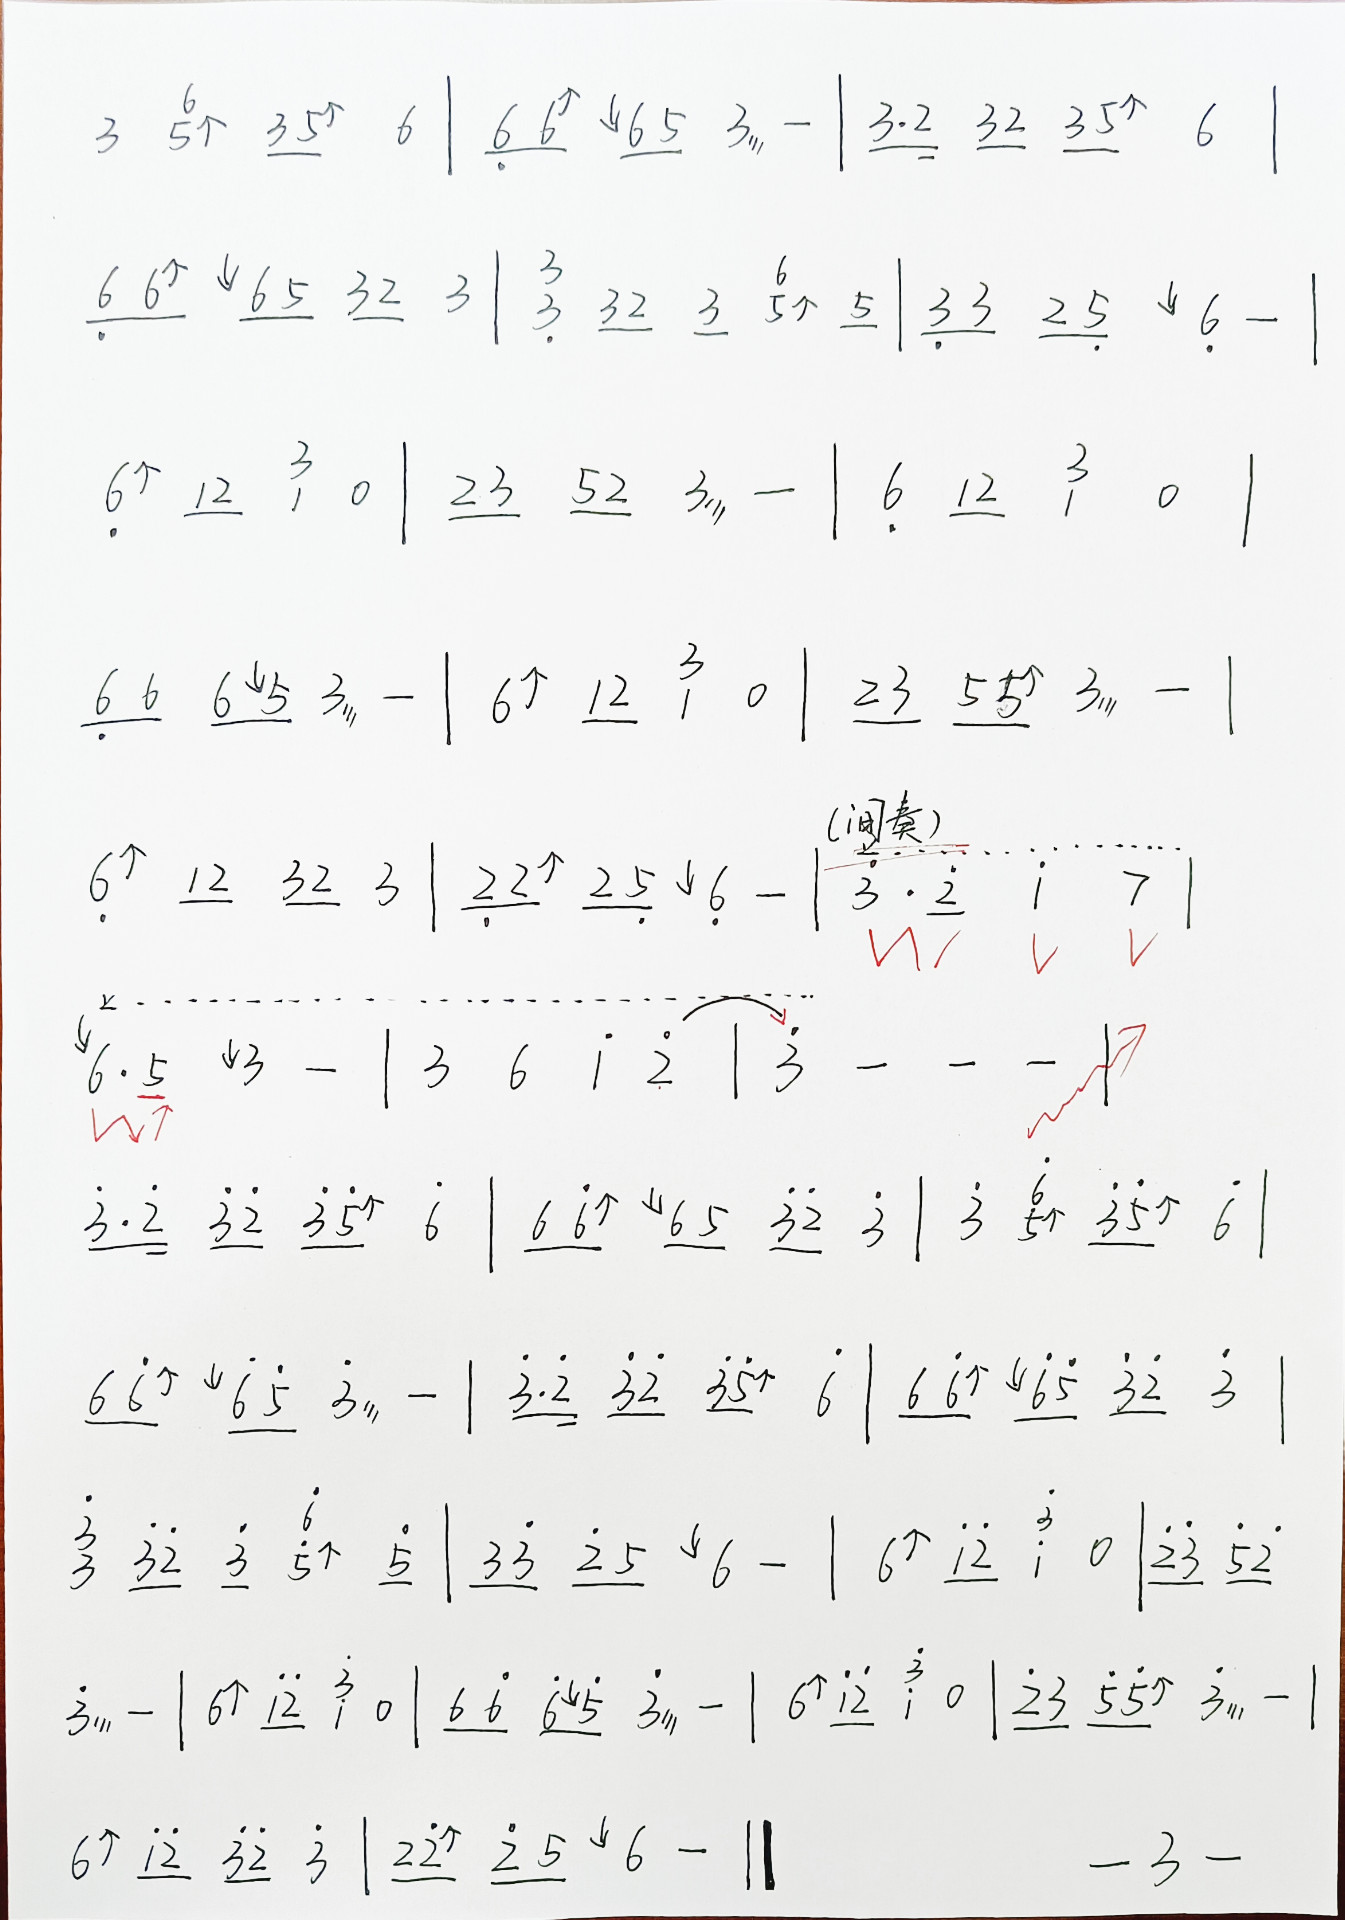 3 6/5↑ 35↑ 6 | 6̣ 6↑ ↓65 3/// – | 3·2 32 35↑ 6 |
6̣ 6↑ ↓65 32 3 | 3/3̣ 32 3 6/5↑ 5 | 3̣3 25̣ ↓6̣ – |
6̣↑ 12 3/1 0 | 23 52 3/// – | 6̣ 12 3/1 0 |
6̣6 6↓5 3/// – | 6↑ 12 3/1 0 | 23 55↑ 3/// – |
(间奏)
6̣↑ 12 32 3 | 2̣2↑ 25̣ ↓6̣ – | 3̇·2̇ 1̇ 7 |
↓6·5 ↓3 – | 3 6 1̇ 2̇ | 3̇ – – – |
3̇·2̇ 3̇2̇ 3̇5̇↑ 6̇ | 66̇↑ ↓65 3̇2̇ 3̇ | 3̇ 6̇/5̇↑ 3̇5̇↑ 6̇ |
66̇↑ ↓6̇5̇ 3̇/// – | 3̇·2̇ 3̇2̇ 3̇5̇↑ 6̇ | 66̇↑ ↓6̇5̇ 3̇2̇ 3̇ |
3̇/3 3̇2̇ 3̇ 6̇/5̇↑ 5̇ | 33̇ 2̇5 ↓6 – | 6↑ 1̇2̇ 3̇/1̇ 0 | 2̇3̇ 5̇2̇
3̇/// – | 6↑ 1̇2̇ 3̇/1̇ 0 | 66̇ 6̇↓5̇ 3̇/// – | 6↑ 1̇2̇ 3̇/1̇ 0 | 2̇3 5̇5̇↑ 3̇/// – |
6↑ 1̇2̇ 3̇2̇ 3̇ | 22̇↑ 2̇5 ↓6 – ‖ – 3 –